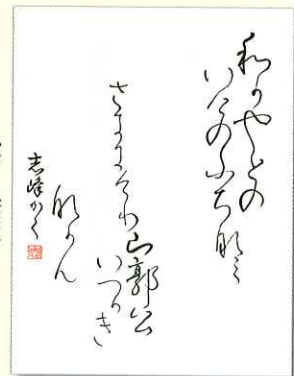 和可やとの
いけのふち那み
さきにけり山郭公
いつかき
那かん
志峰かく